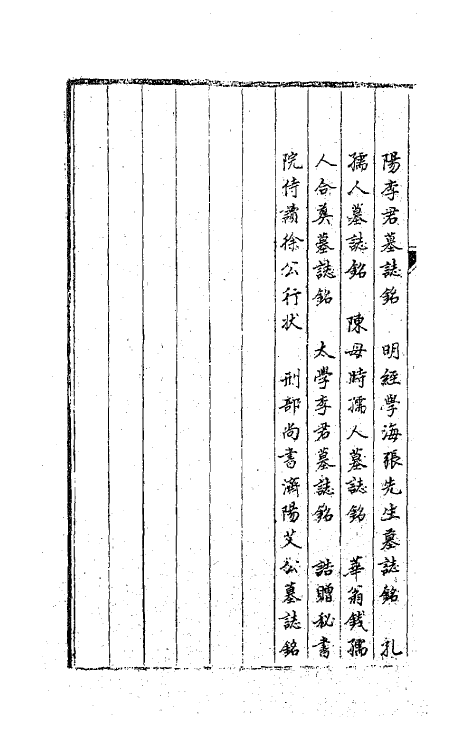 陽李君墓誌銘 明經學海張先生墓誌銘 孔
孺人墓誌銘 陳母時孺人墓誌銘 華翁錢孺
人合奠墓誌銘 太學李君墓誌銘 誥贈秘書
院侍讀徐公行状 刑部尚書濟陽艾公墓誌銘